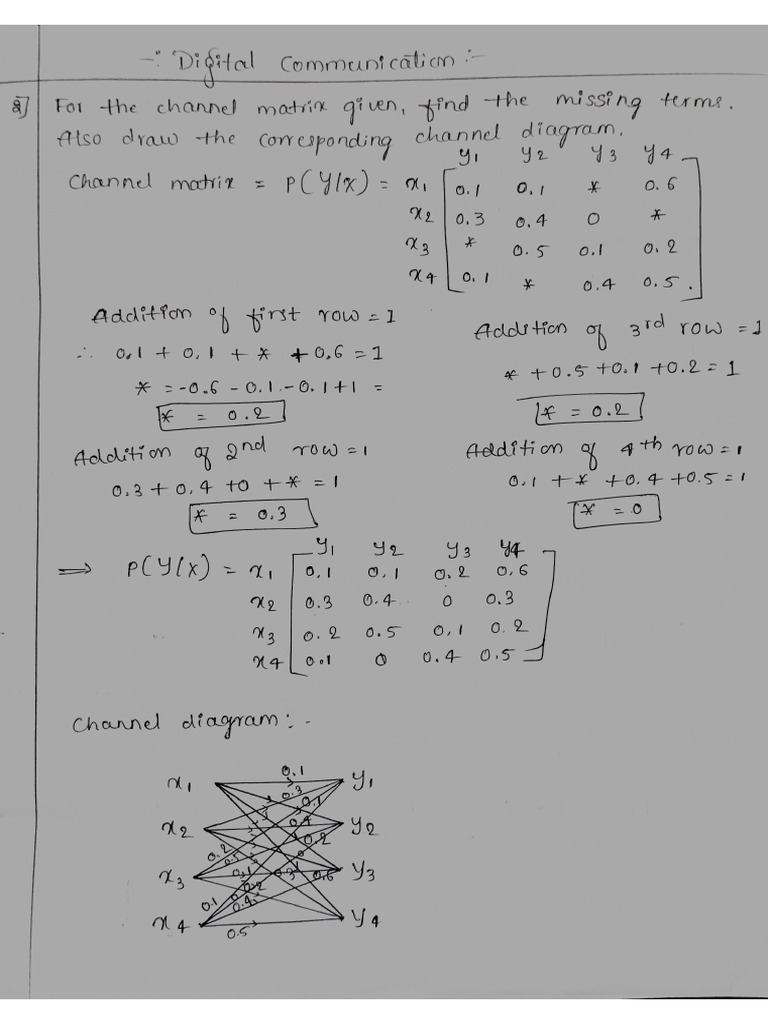 -: Digital Communication:-
2] For the channel matrix given, find the missing terms.
Also draw the corresponding channel diagram.
y1 y2 y3 y4
Channel matrix = P(Y/X) = x1 [0.1 0.1 * 0.6
x2 0.3 0.4 0 *
x3 * 0.5 0.1 0.2
x4 0.1 * 0.4 0.5.]
Addition of first row = 1
∴ 0.1 + 0.1 + * + 0.6 = 1
* = -0.6 - 0.1 - 0.1 + 1 =
* = 0.2
Addition of 2nd row = 1
0.3 + 0.4 + 0 + * = 1
* = 0.3
Addition of 3rd row = 1
* + 0.5 + 0.1 + 0.2 = 1
* = 0.2
Addition of 4th row = 1
0.1 + * + 0.4 + 0.5 = 1
* = 0
y1 y2 y3 y4
⇒ P(Y/X) = x1 [0.1 0.1 0.2 0.6
x2 0.3 0.4 0 0.3
x3 0.2 0.5 0.1 0.2
x4 0.1 0 0.4 0.5]
Channel diagram:-
0.1
x1 y1
0.3
0.1
x2 0.4 y2
0.2 0.2
0.5
x3 0.1 0.6 y3
0.2
0.1 0.4
x4 y4
0.5